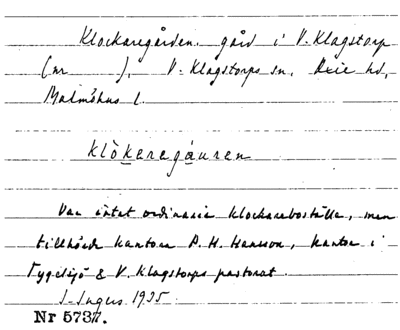 Klockaregården. gård i V. Klagstorp
(nr ), V. Klagstorps sn, Oxie hd,
Malmöhus l.
klòkeregáuren
Var intet ordinarie klockareboställe, men
tillhörde kantorn P. H. Hansson, kantor i
Tygelsjö & V. Klagstorps pastorat.
1935
Nr 5737.